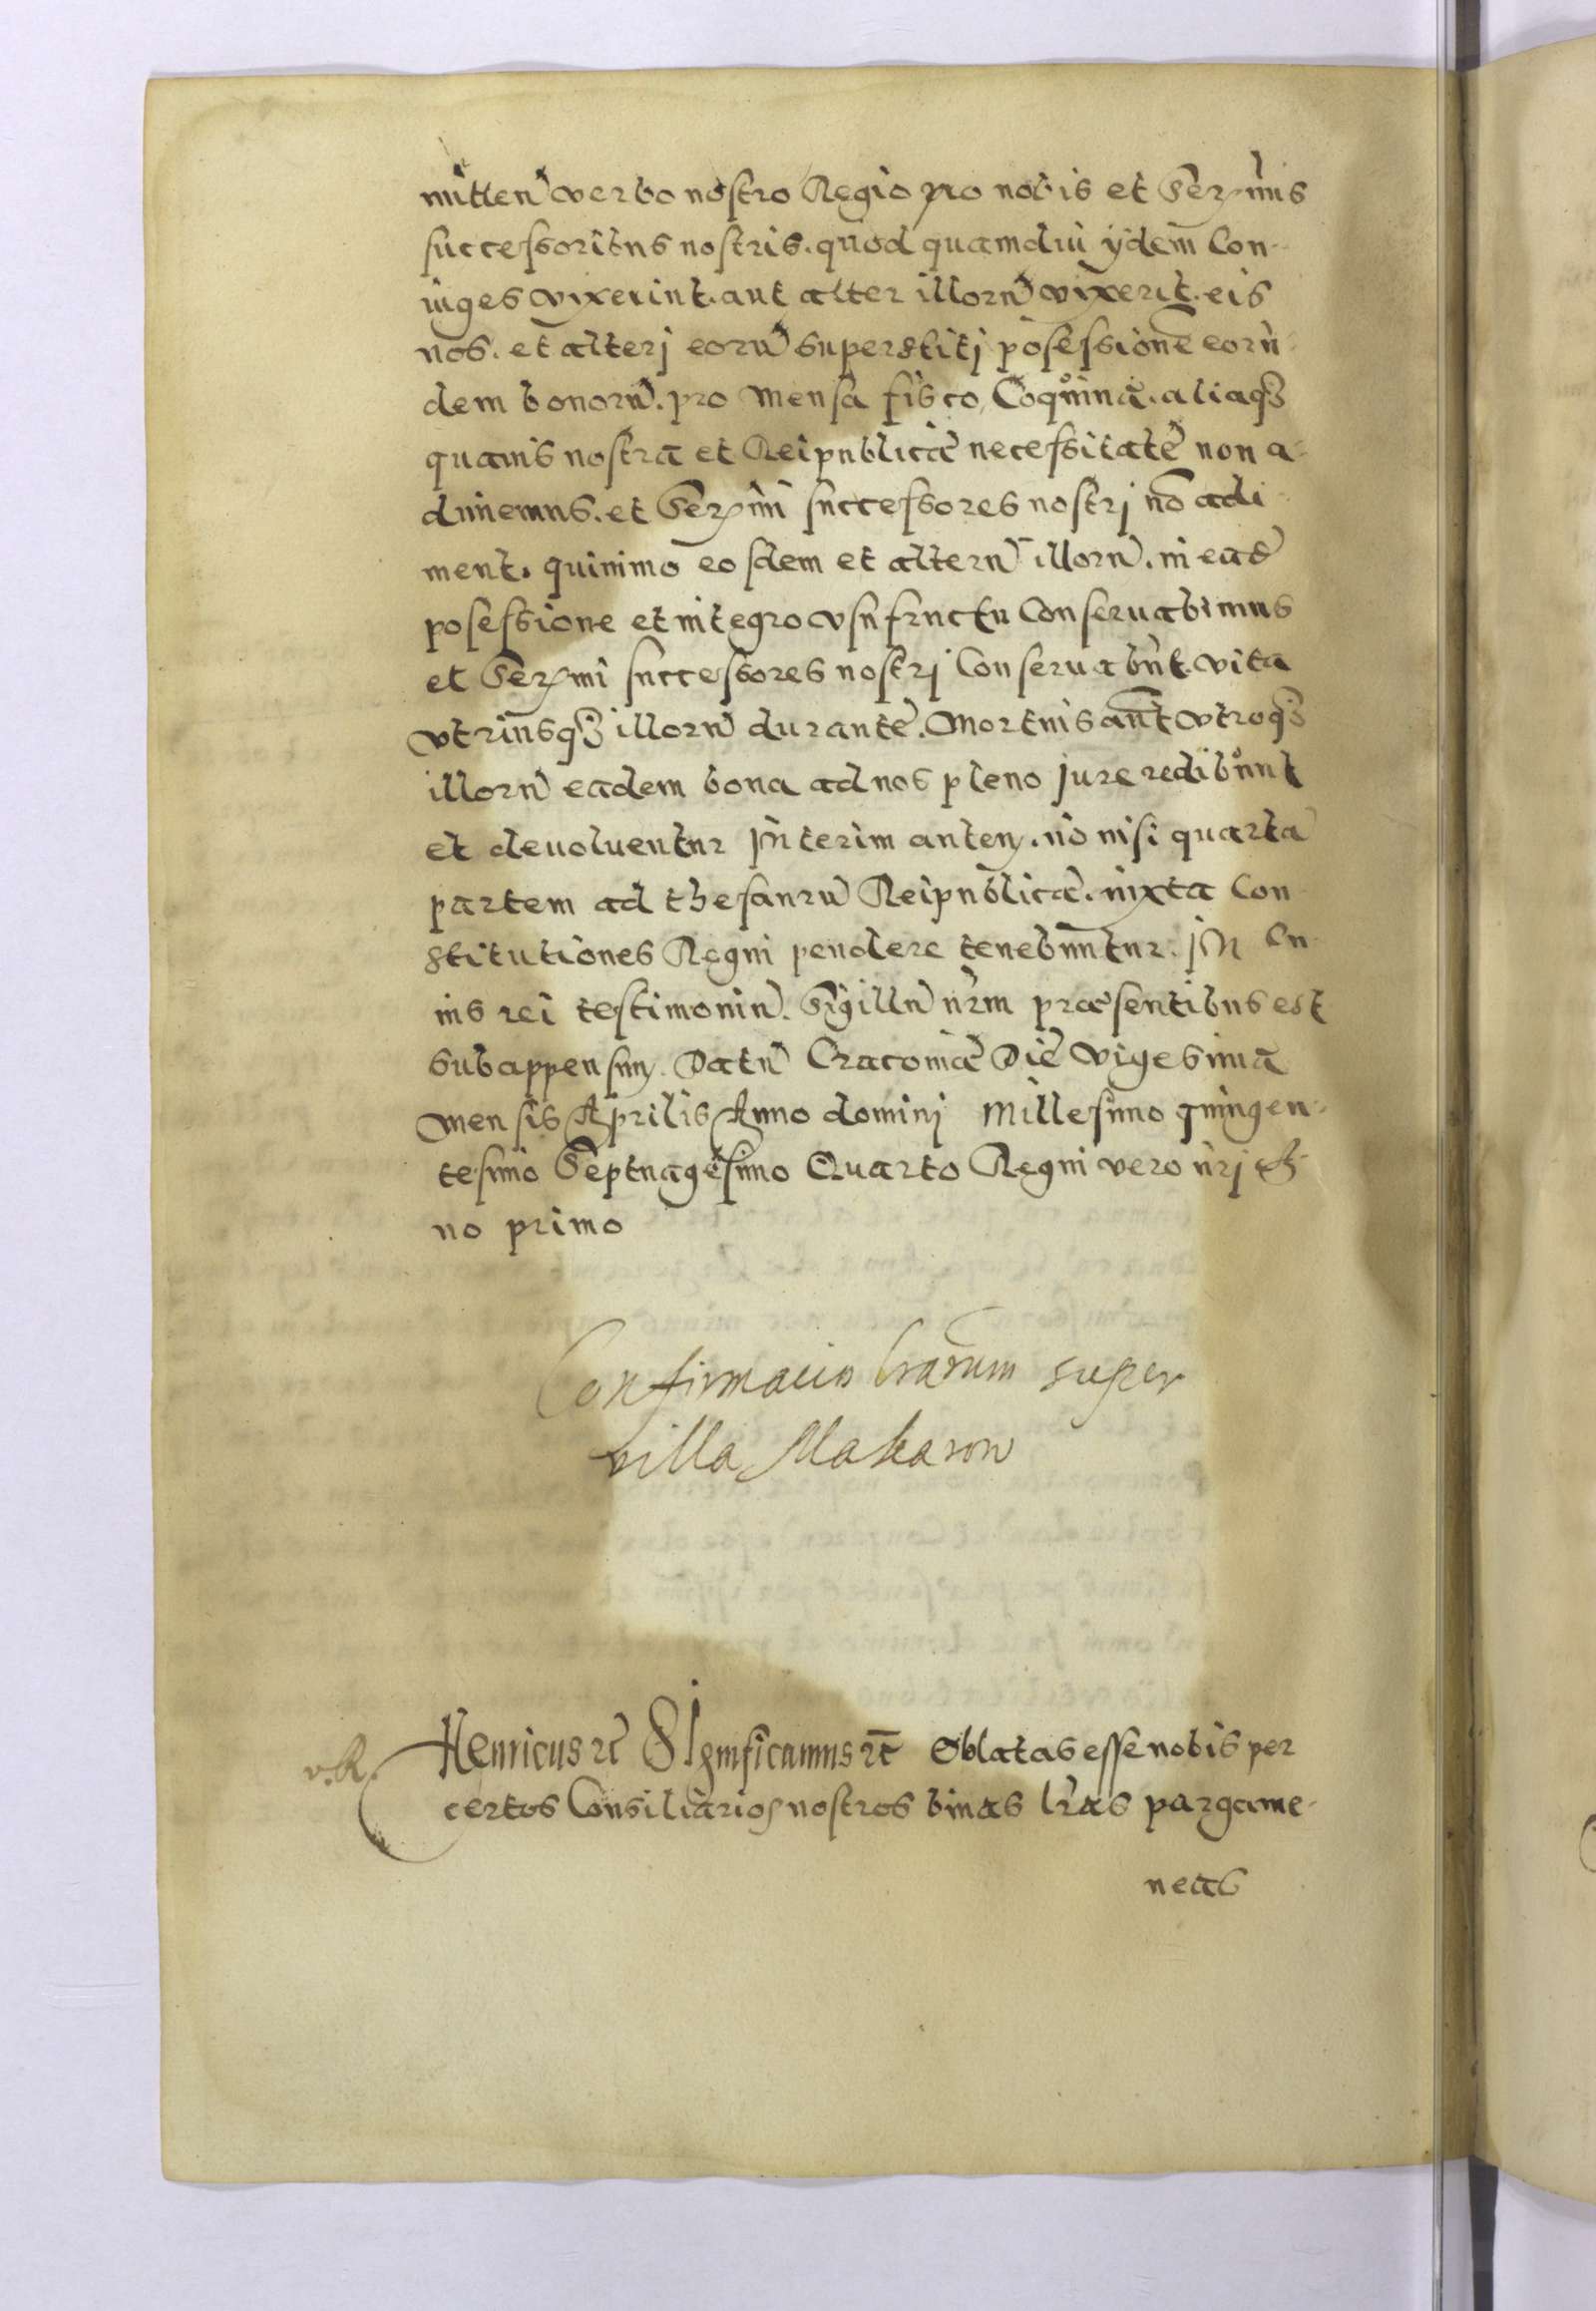 mitten verbo nostro Regio pro nobis et Sermis
successoribus nostris. quod quamdiu ÿdem Con-
iuges vixerint. aut alter illorū vixerit. eis
nos. et alterj eorū superstitj posessionē eorū-
dem bonorū. pro mensa fisco, Coquina. aliaqȝ
quauis nostra et Reipublicæ necessitate non a-
dimemus. et Sermi successores nostrj nō adi
ment. quinimo eosdem et alterū illorū. in eadē
posessione et integro vsufructu Conseruabimus
et Sermi successores nostrj Conseruabūt. vita
vtriusqȝ illorū durante. Mortuis aūt vtroqȝ
illorū eadem bona ad nos pleno jure redibunt
et deuoluentur Interim autem. nō nisi quarta
partem ad thesaurū Reipublicæ. iuxta Con-
stitutiones Regni pendere tenebuntur. In Cu-
ius rei testimoniū. Sigillū nrm præsentibus est
subappensum. Datū Cracouiæ Die vigesima
mensis Aprilis Anno dominj Millesimo quingen-
tesimo Septuagesimo Quarto Regni vero nrj A-
no primo
Confirmacio lrarum super
villa Makarow
v. R. Henricus rc̄ Significamus rc̄ Oblatas esse nobis per
certos Consiliarios nostros binas lras pargame-
neas